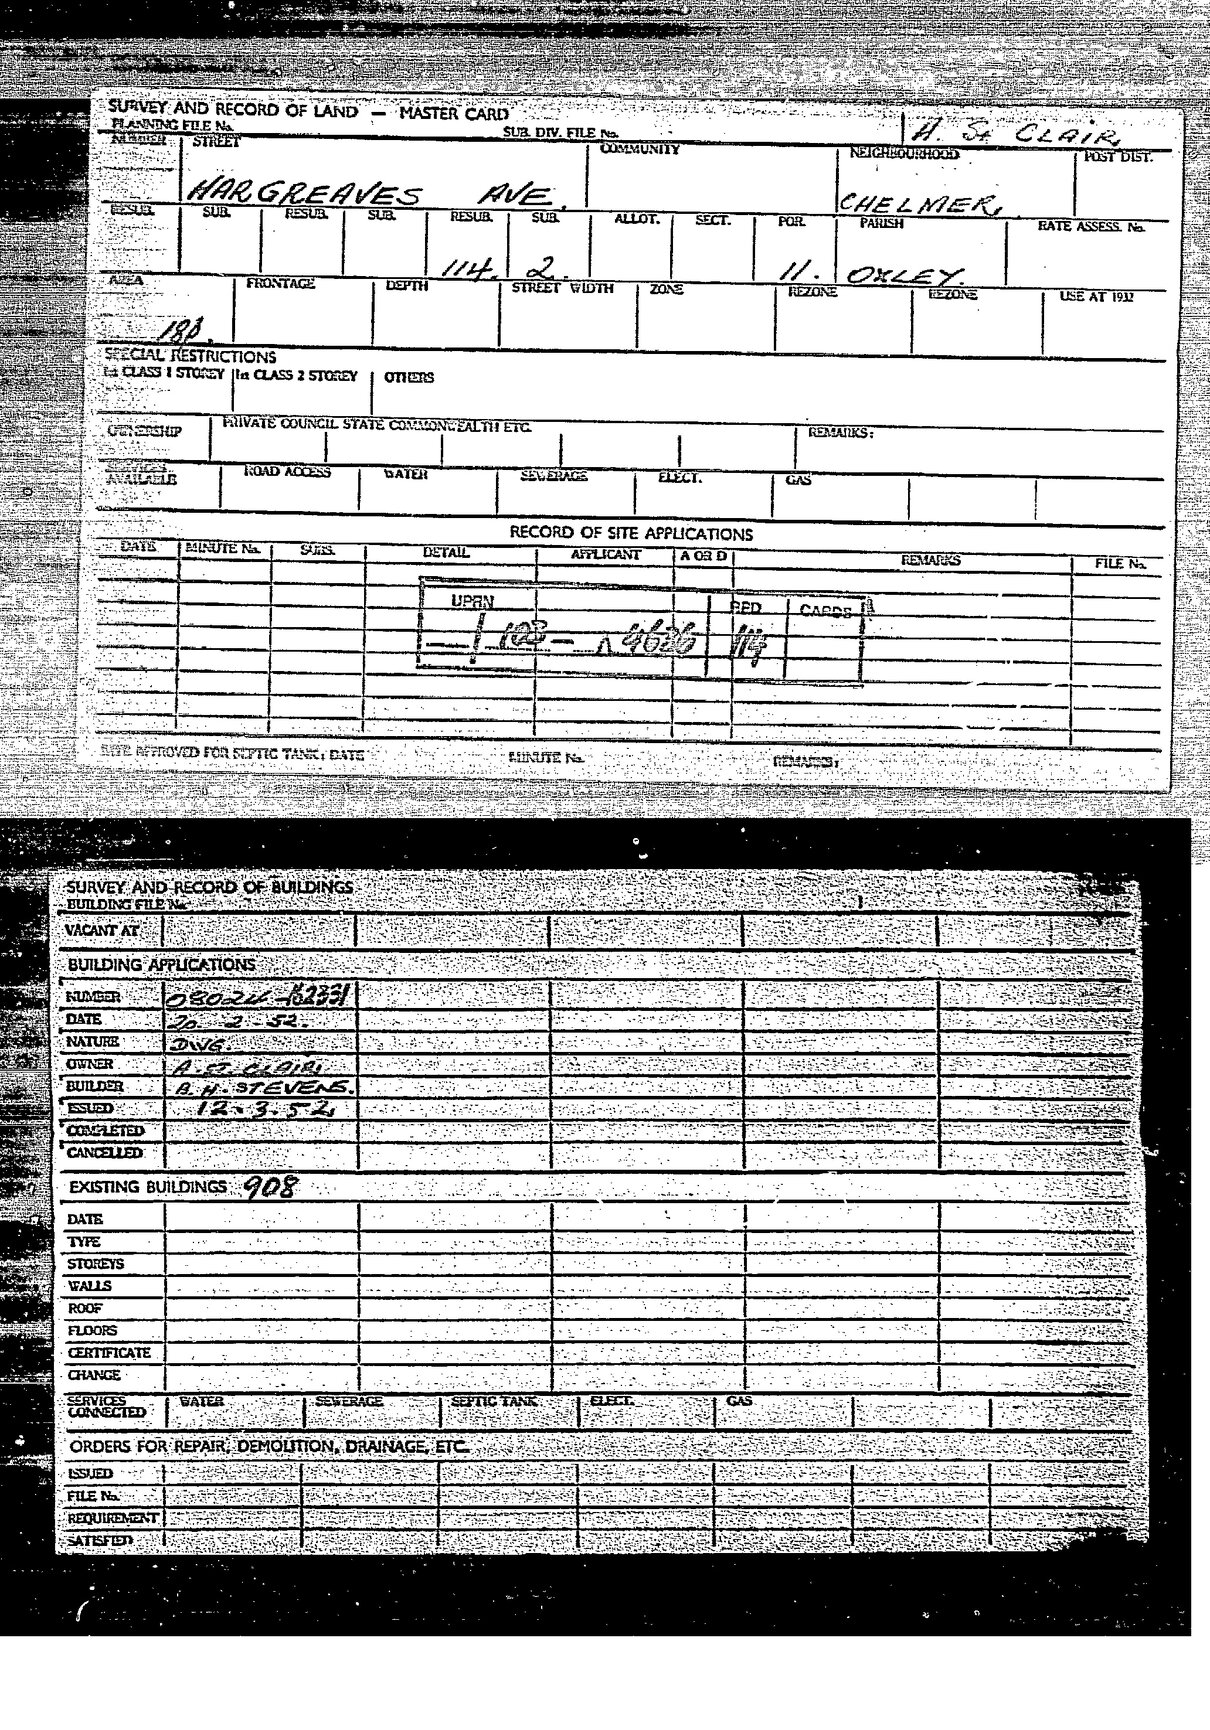 SURVEY AND RECORD OF LAND — MASTER CARD
PLANNING FILE No. SUB. DIV. FILE No. A. St CLAIR.
NUMBER STREET COMMUNITY NEIGHBOURHOOD POST DIST.
HARGREAVES AVE. CHELMER.
RESUB. SUB. RESUB. SUB. RESUB. SUB. ALLOT. SECT. POR. PARISH RATE ASSESS. No.
114. 2. 11. OXLEY.
AREA FRONTAGE DEPTH STREET WIDTH ZONE REZONE REZONE USE AT 1932
18p.
SPECIAL RESTRICTIONS
1st CLASS 1 STOREY 1st CLASS 2 STOREY OTHERS
OWNERSHIP PRIVATE COUNCIL STATE COMMONWEALTH ETC. REMARKS:
SERVICES AVAILABLE ROAD ACCESS WATER SEWERAGE ELECT. GAS
RECORD OF SITE APPLICATIONS
DATE MINUTE No. SUBS. DETAIL APPLICANT A OR D REMARKS FILE No.
UPRN RPD CARDS
4626 114
SITE APPROVED FOR SEPTIC TANK: DATE MINUTE No. REMARKS:
SURVEY AND RECORD OF BUILDINGS
BUILDING FILE No.
VACANT AT
BUILDING APPLICATIONS
NUMBER
DATE 20-2-52.
NATURE DWG.
OWNER A. ST. CLAIR.
BUILDER B. H. STEVENS.
ISSUED 12.3.52.
COMPLETED
CANCELLED
EXISTING BUILDINGS 908
DATE
TYPE
STOREYS
WALLS
ROOF
FLOORS
CERTIFICATE
CHANGE
SERVICES CONNECTED WATER SEWERAGE SEPTIC TANK ELECT. GAS
ORDERS FOR REPAIR, DEMOLITION, DRAINAGE, ETC.
ISSUED
FILE No.
REQUIREMENT
SATISFIED